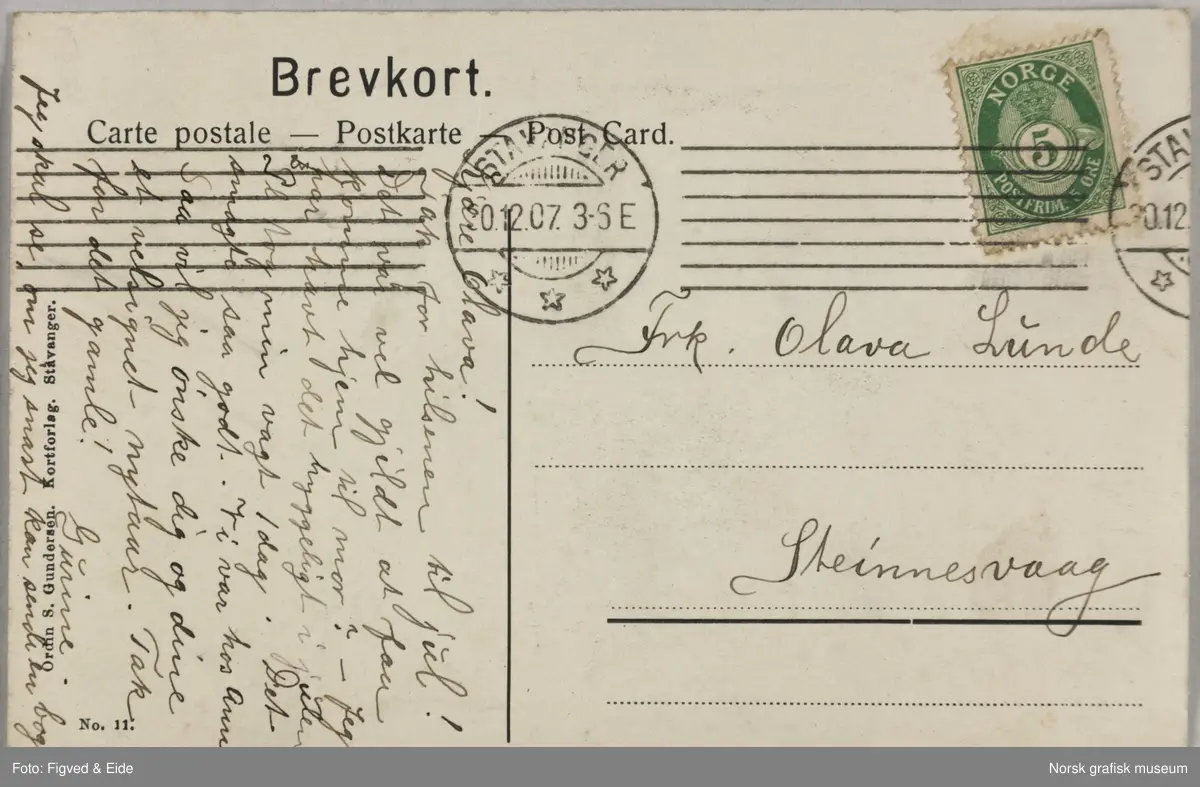 Brevkort.
Carte postale — Postkarte — Post Card.
NORGE
5
POSTFRIM. 5 ØRE
STAVANGER
30.12.07. 3-6 E
STAV
30.12.
Kjære Olava!
Tak for hilsenen til jul!
Det var vel gjildt at faa
komme hjem til mor? – Jeg
har havt det hyggeligt i
tog min vagt idag. Det
smagte saa godt. Vi var hos Anne
Saa vil jeg ønske dig og dine
et velsignet nytaar. Tak
for det gamle!
Gurine.
Jeg skal se, om jeg snart kan sende en bog
Frk. Olava Lunde
Steinnesvaag
Ordin S. Gundersen. Kortforlag. Stavanger.
No. 11.
Foto: Figved & Eide
Norsk grafisk museum